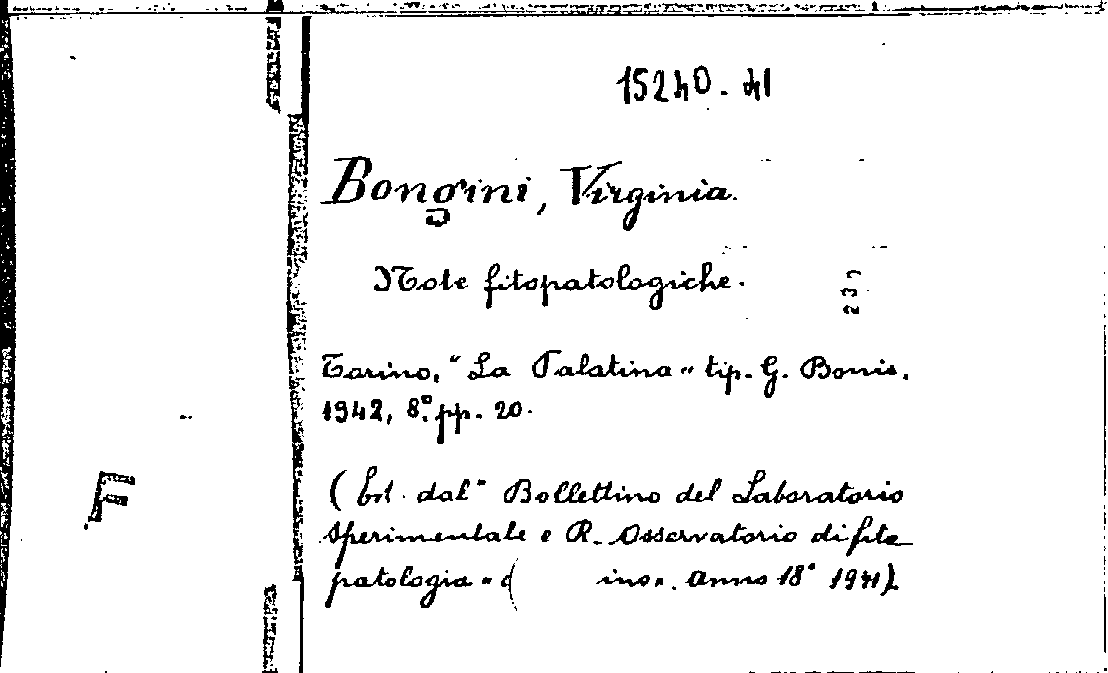 15240.41
Bongini, Virginia.
Note fitopatologiche.
239
Torino, "La Palatina" tip. G. Bonis.
1942, 8.° pp. 20.
F
(Est. dal "Bollettino del Laboratorio
sperimentale e R. Osservatorio di fito
patologia" ino". Anno 18° 1941).